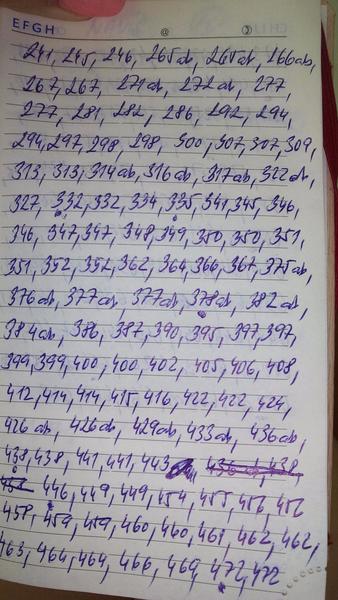 EFGH @
241, 245, 246, 265ab, 265ab, 266ab,
267, 267, 271ab, 272ab, 277,
277, 281, 282, 286, 292, 294,
294, 297, 298, 298, 300, 307, 307, 309,
313, 313, 314ab, 316ab, 317ab, 322ab,
327, 332, 332, 334, 335, 341, 345, 346,
346, 347, 347, 348, 349, 350, 350, 351,
351, 352, 352, 362, 364, 366, 367, 375ab,
376ab, 377ab, 377ab, 378ab, 382ab,
384ab, 386, 387, 390, 395, 397, 397,
399, 399, 400, 400, 402, 405, 406, 408,
412, 414, 414, 415, 416, 422, 422, 424,
426ab, 426ab, 429ab, 433ab, 436ab,
438, 438, 441, 441, 443, 436ab, 438
446, 449, 449, 454, 455, 456, 456
458, 459, 459, 460, 460, 461, 462, 462,
463, 464, 464, 466, 469, 472, 472